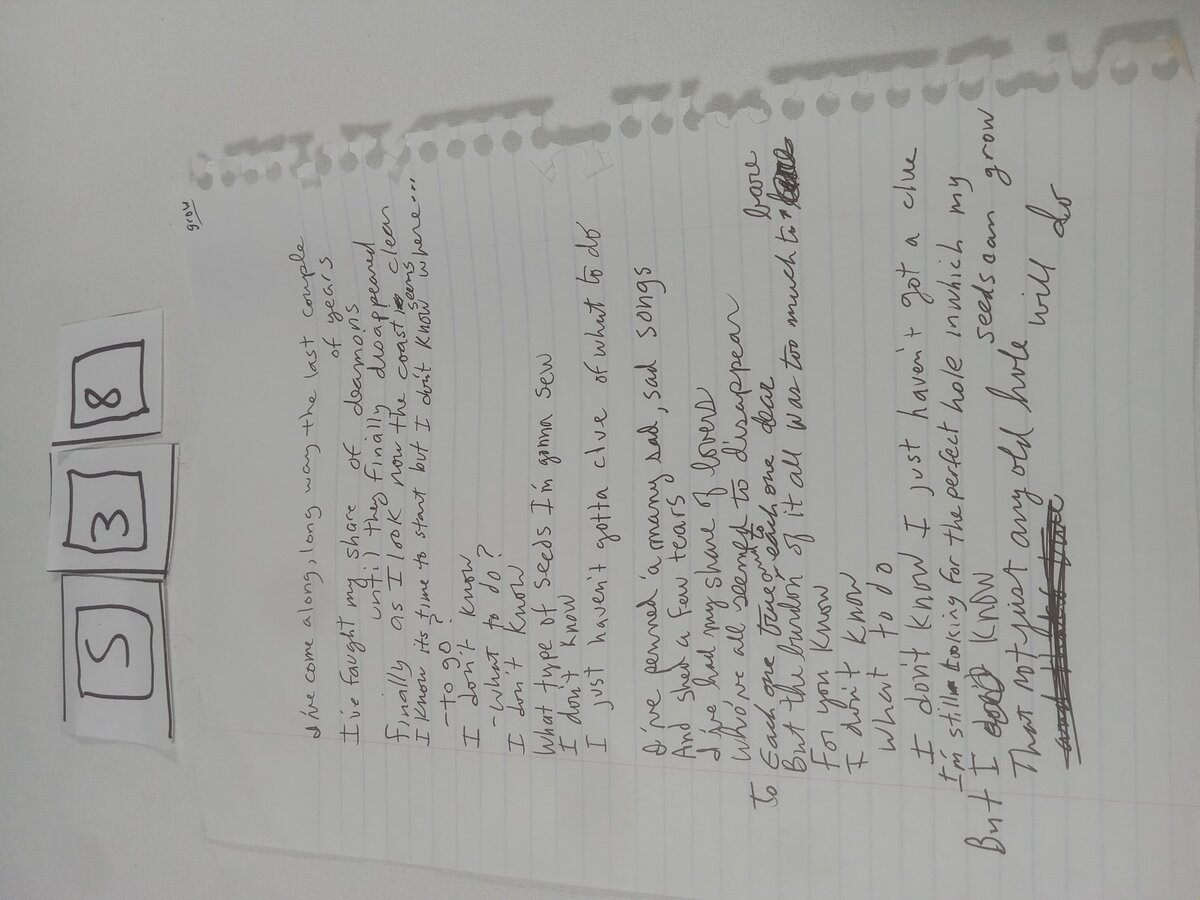 5 3 8
grow
I've come along, long way the last couple
of years
I've faught my share of deamons
until they finally disappeared
Finally as I look now the coast seems clear
I know its time to start but I don't know where...
- to go?
I don't know
- what to do?
I don't know
What type of seeds I'm gonna sew
I don't know
I just haven't gotta clue of what to do
I've penned a many sad, sad songs
And shed a few tears
I've had my share of lovers
Who've all seemed to disappear
to Each one true and to each one dear
But the burdon of it all was too much to bare
For you know
I don't know
what to do
I don't know I just haven't got a clue
I'm still looking for the perfect hole in which my
seeds can grow
But I know
That not just any old hole will do